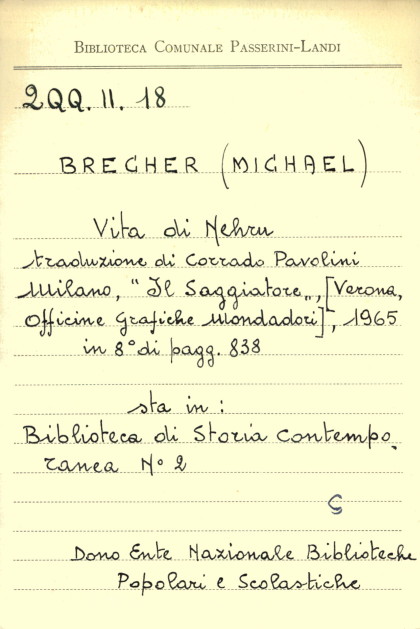 BIBLIOTECA COMUNALE PASSERINI-LANDI
2QQ. II. 18
BRECHER (MICHAEL)
Vita di Nehru
traduzione di Corrado Pavolini
Milano, "Il Saggiatore„, [Verona,
Officine Grafiche Mondadori], 1965
in 8° di pagg. 838
sta in :
Biblioteca di Storia Contempo.
ranea N° 2
C
Dono Ente Nazionale Biblioteche
Popolari e Scolastiche